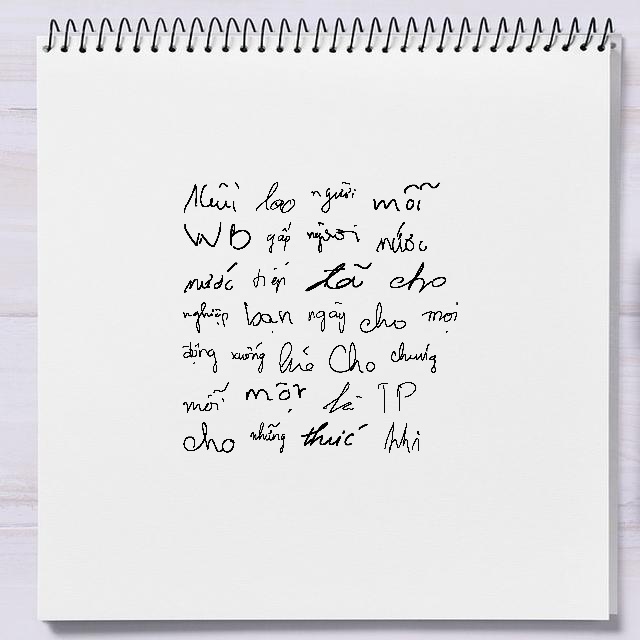 lao người mỗi
WB gấp người nước
nước tiếp tã cho
nghiệp bạn ngày cho mọi
động xuống lúc Cho chúng
mỗi một là TP
cho những thức khi